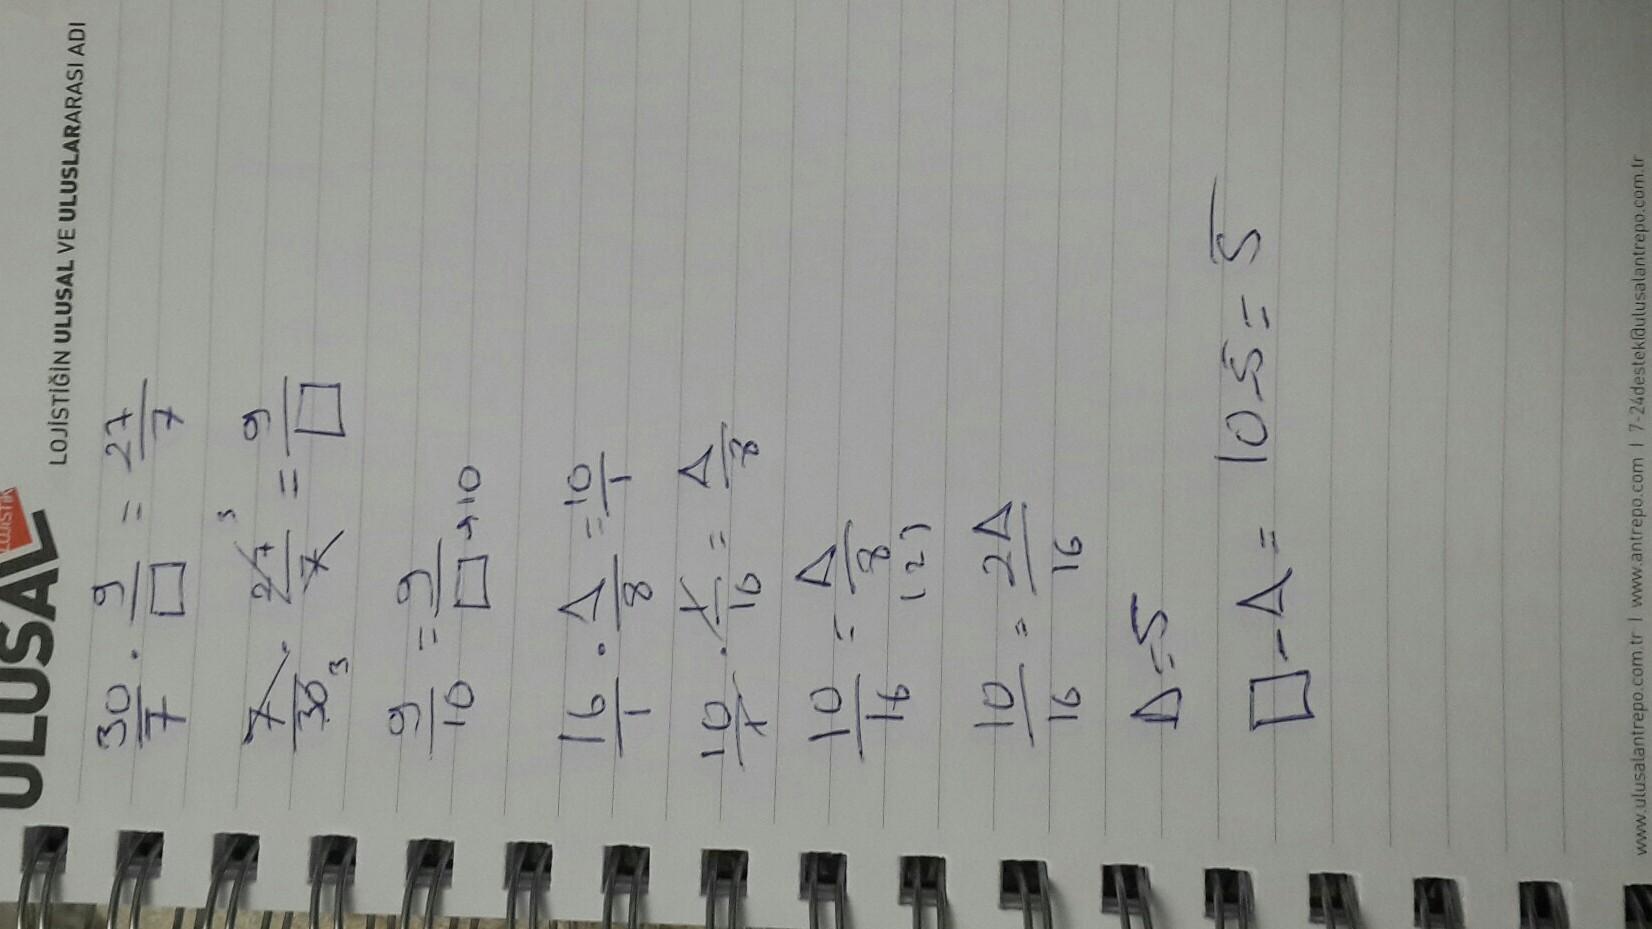 ULUSAL
LOJİSTİK
LOJİSTİĞİN ULUSAL VE ULUSLARARASI ADI
30/7 · 9/□ = 27/7
7/30 3 · 27 3/7 = 9/□
9/10 = 9/□ → 10
16/1 · Δ/8 = 10/1
10/1 · 1/16 = Δ/8
10/16 = Δ/8 (2)
10/16 = 2Δ/16
Δ = 5
□ - Δ = 10-5 = 5
www.ulusalantrepo.com.tr | www.antrepo.com | 7-24destek@ulusalantrepo.com.tr